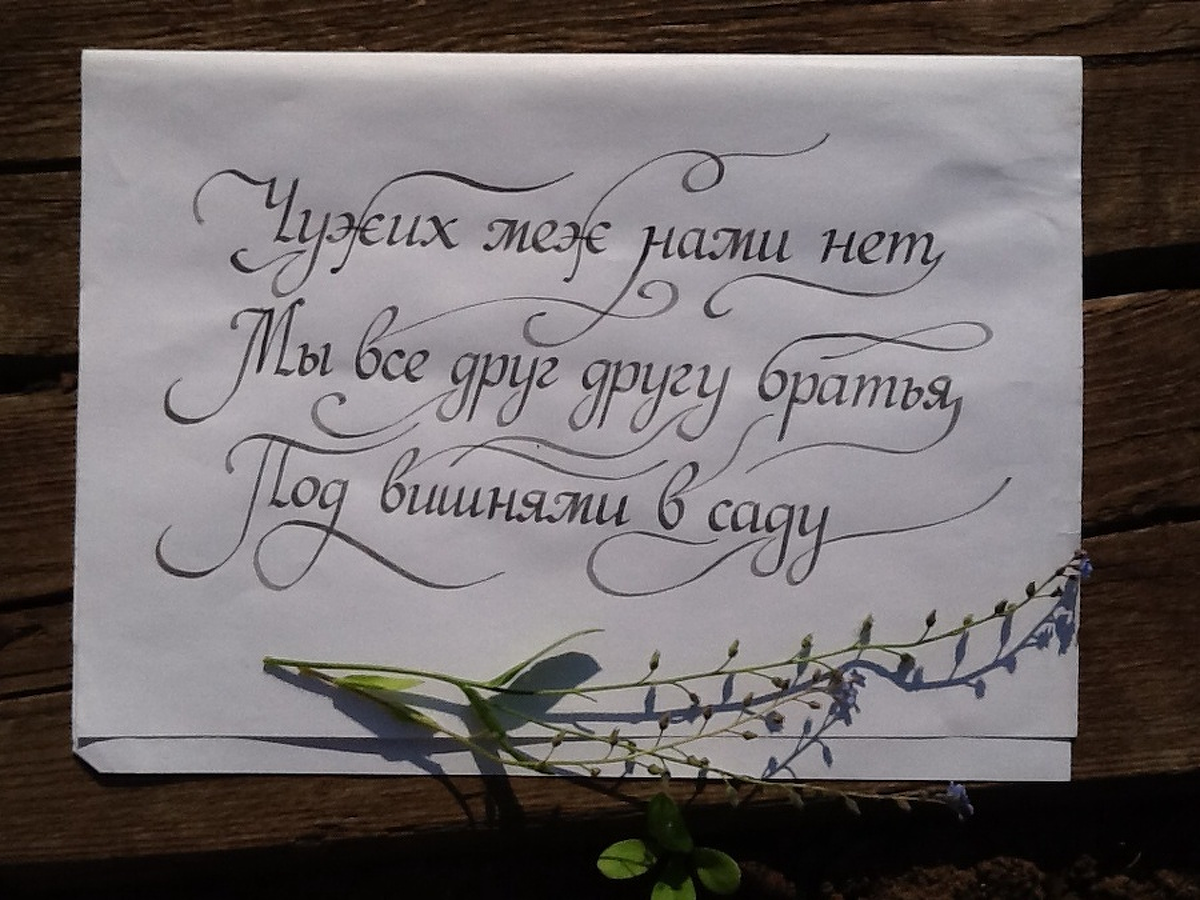 Чужих меж нами нет
Мы все друг другу братья
Под вишнями в саду